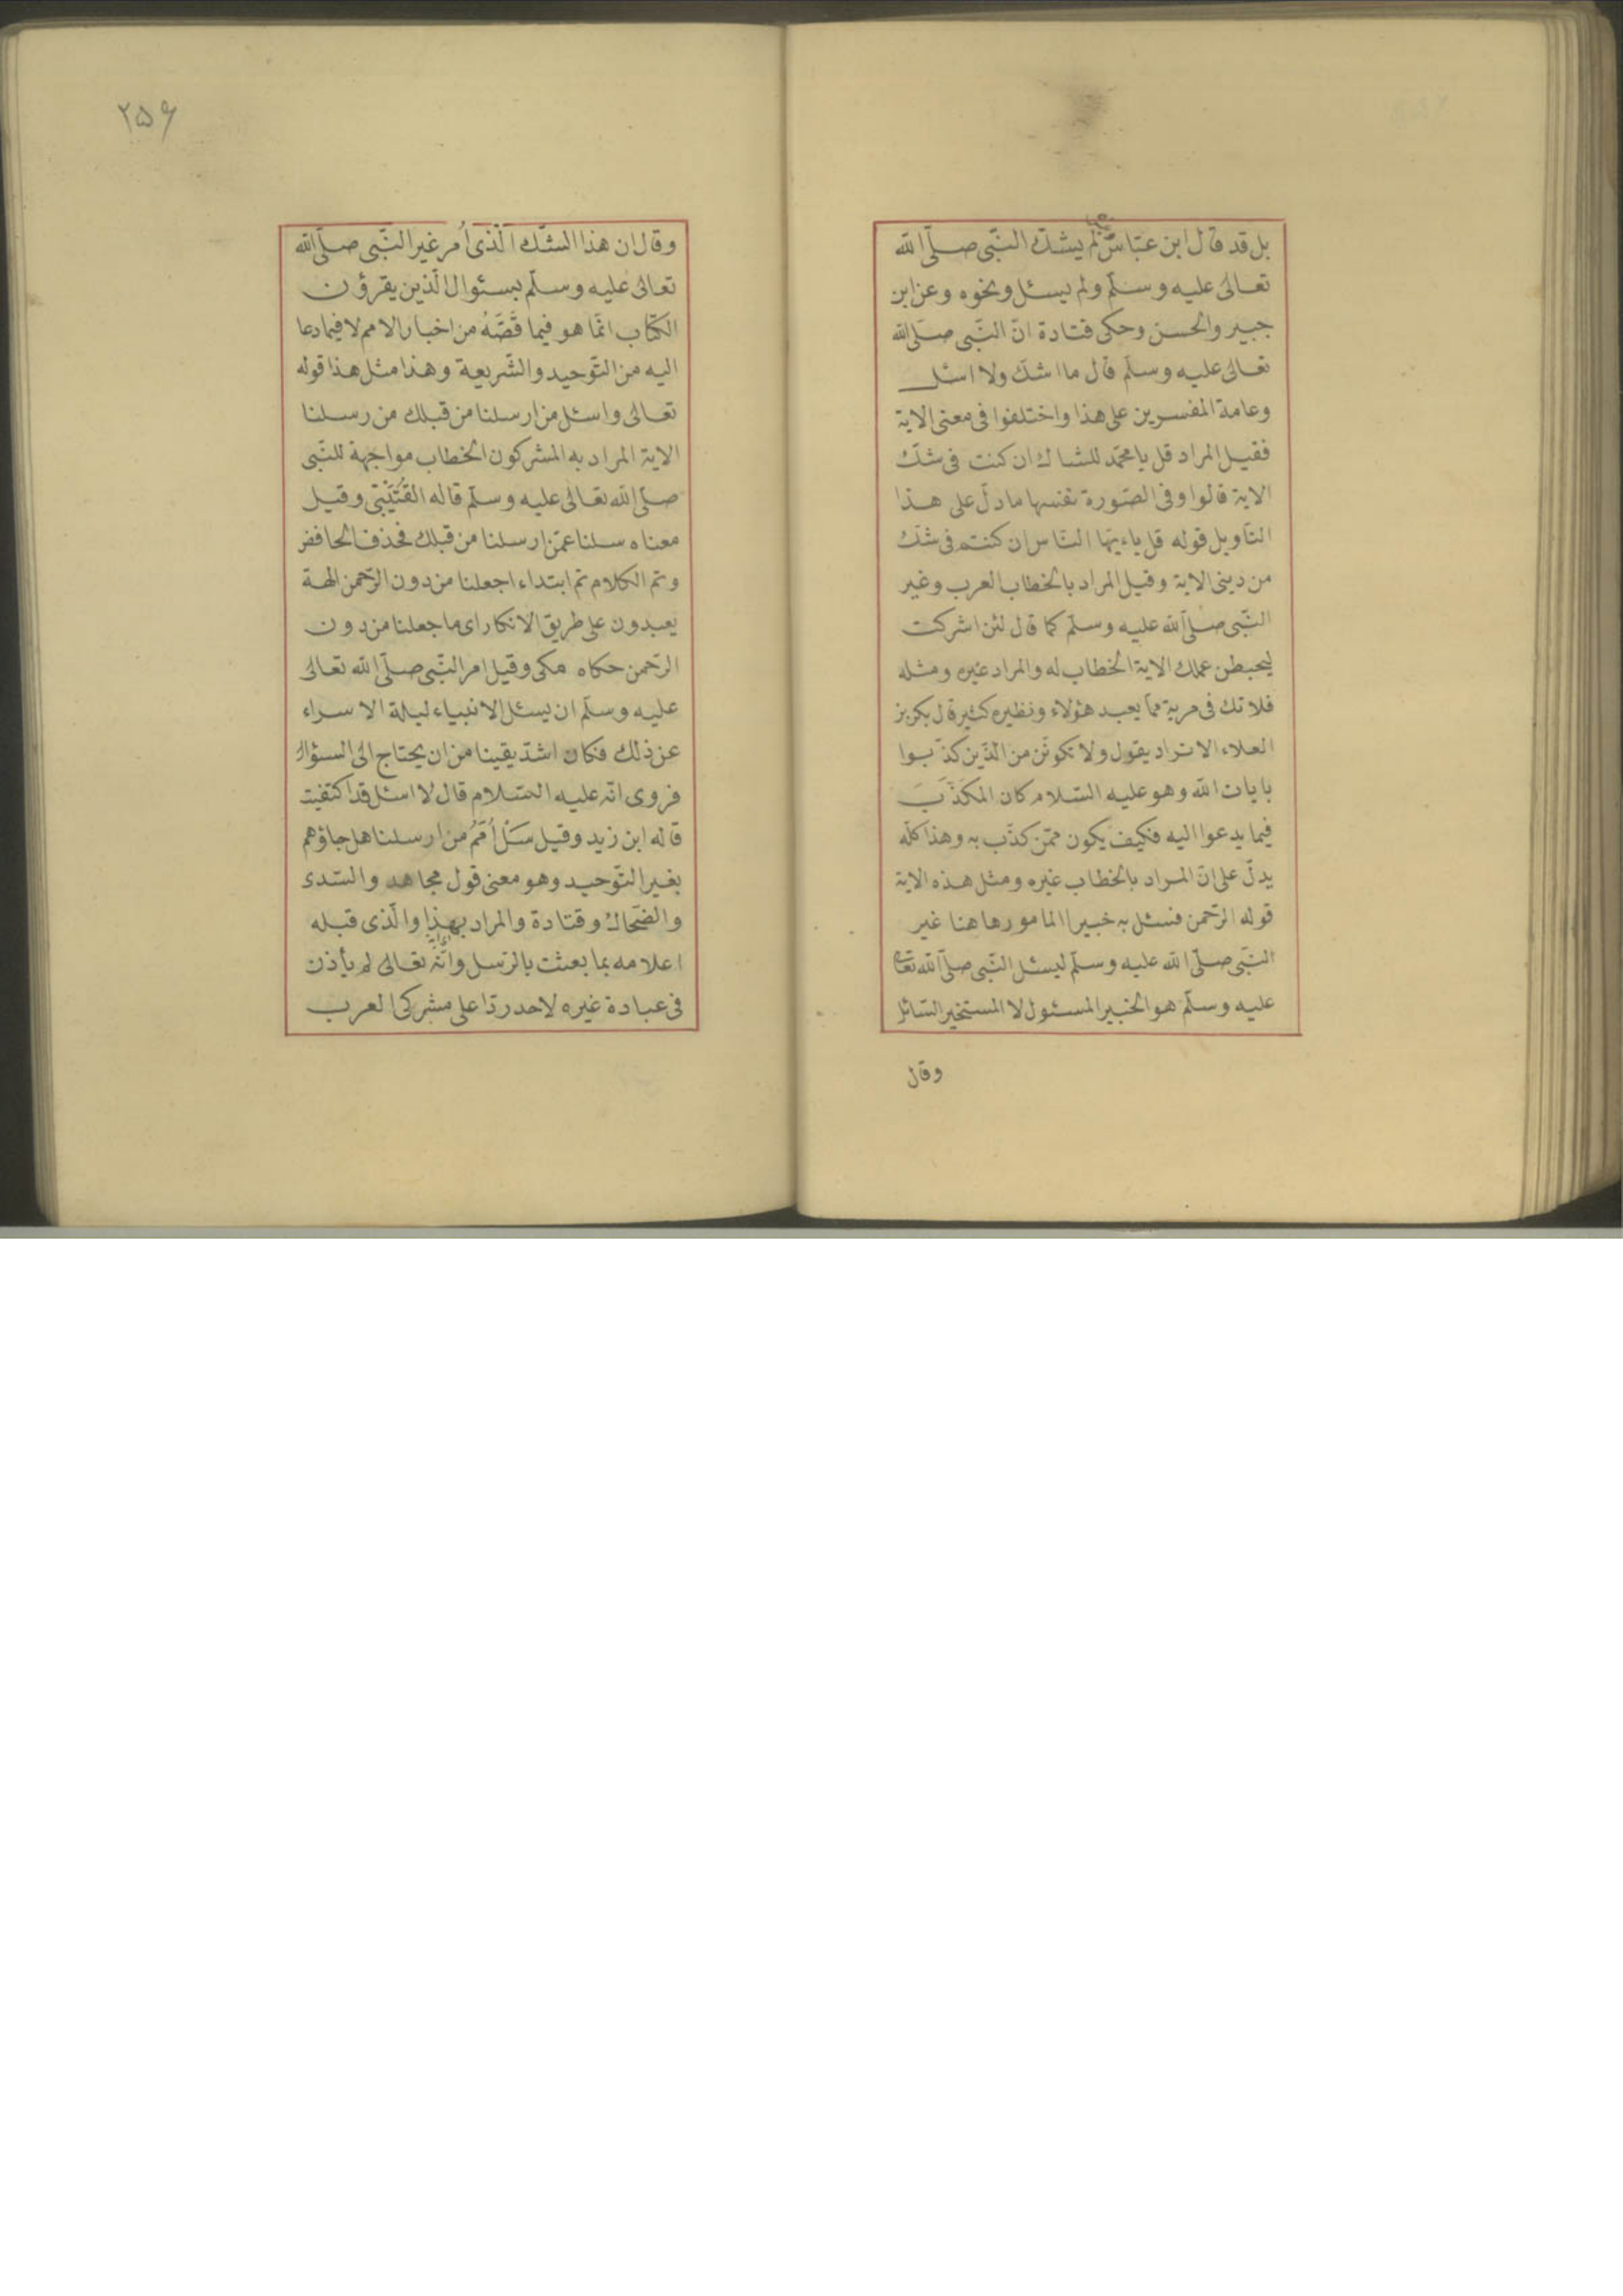 بل قد قال ابن عبّاس لم يشكّ النّبى صلّى الله
تعالى عليه وسلّم ولم يسئل ونحوه وعن ابن
جبير والحسن وحكى قتادة انّ النّبى صلّى الله
تعالى عليه وسلّم قال ما اشكّ ولا اسئل
وعامة المفسرين على هذا واختلفوا فى معنى الاية
فقيل المراد قل يا محمّد للشاك ان كنت فى شكّ
الاية قالوا وفى الصّورة نفسها ما دلّ على هذا
التأويل قوله قل ياءيّها النّاس ان كنتم فى شكّ
من دينى الاية وقيل المراد بالخطاب العرب وغير
النّبى صلّى الله عليه وسلّم كما قال لئن اشركت
ليحبطن عملك الاية الخطاب له والمراد غيره ومثله
فلا تك فى مرية ممّا يعبد هؤلاء ونظيره كثير قال بكر بن
العلاء الا تراه يقول ولا تكوننّ من الّذين كذّبوا
بايات الله وهو عليه السّلام كان المكَذَّبَ
فيما يدعوا اليه فكيف يكون ممّن كذّب به وهذا كلّه
يدلّ على انّ المراد بالخطاب غيره ومثل هذه الاية
قوله الرّحمن فسئل به خبيرا المامور هاهنا غير
النّبى صلّى الله عليه وسلّم ليسئل النّبى صلّى الله تعالى
عليه وسلّم هو الخبير المسئول لا المستخبر السّائل
وقال
٢٥۶
وقال ان هذا الشّك الّذى اُمر غير النّبى صلّى الله
تعالى عليه وسلّم بسئوال الّذين يقرؤن
الكتاب انّما هو فيما قَصَّهُ من اخبار الامم لا فيما دعا
اليه من التّوحيد والشّريعة وهذا مثل هذا قوله
تعالى واسئل من ارسلنا من قبلك من رسلنا
الاية المراد به المشركون الخطاب مواجهة للنّبى
صلّى الله تعالى عليه وسلّم قاله القُتَيْبِىّ وقيل
معناه سلنا عمّن ارسلنا من قبلك فحذف الخافض
وتم الكلام ثم ابتداء اجعلنا من دون الرّحمن الهة
يعبدون على طريق الانكار اى ما جعلنا من دون
الرّحمن حكاه مكى وقيل امر النّبى صلّى الله تعالى
عليه وسلّم ان يسئل الانبياء ليلة الاسراء
عن ذلك فكان اشدّ يقينا من ان يحتاج الى السؤال
فروى انّه عليه السّلام قال لا اسئل قد اكتفيت
قاله ابن زيد وقيل سَلْ اُمَمَ من ارسلنا هل جاؤهم
بغير التّوحيد وهو معنى قول مجاهد والسّدى
والضّحاك وقتادة والمراد بهذا والّذى قبله
اعلامه بما بعثت به الرّسل وانّه تعالى لم يأذن
فى عبادة غيره لاحد ردّا على مشركى العرب